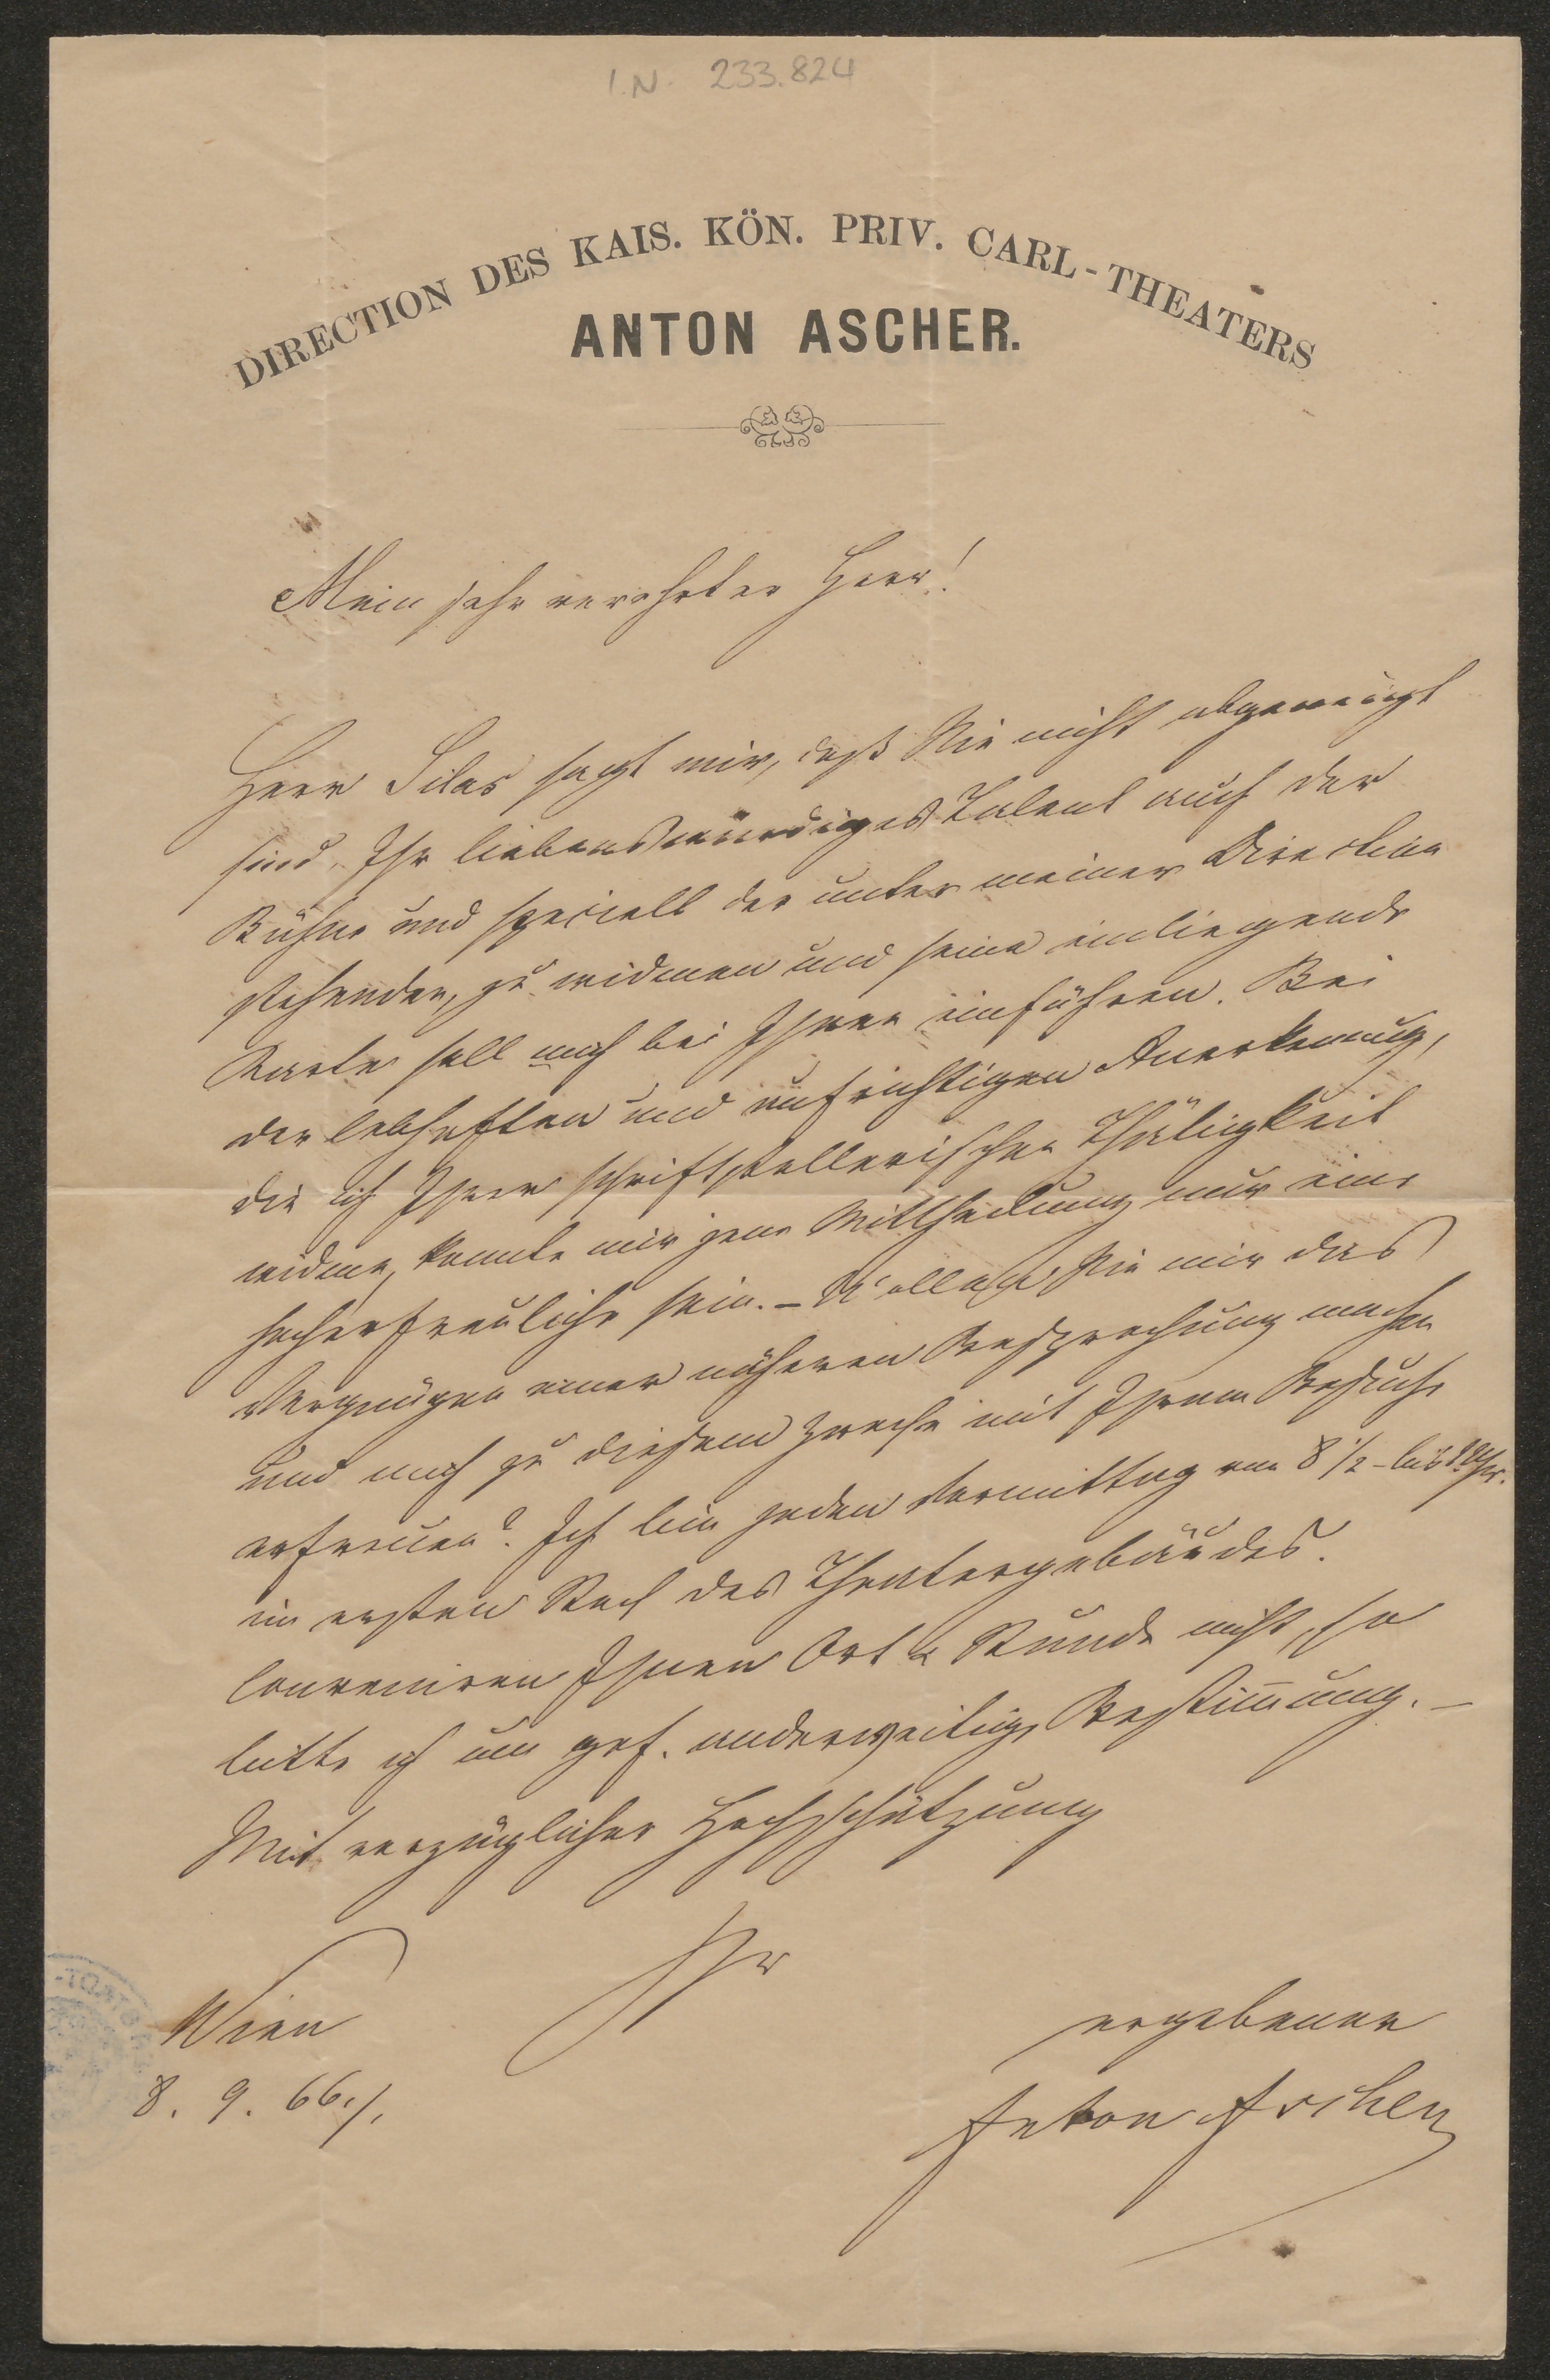 I.N. 233.824
DIRECTION DES KAIS. KÖN. PRIV. CARL-THEATERS
ANTON ASCHER.
Mein sehr verehrter Herr!
Herr Silas sagt mir, daß Sie nicht abgeneigt
sind, Ihr liebenswürdiges Talent auch der
Bühne und speciell der unter meiner Direction
stehenden, zu widmen und seine einliegende
Karte soll mich bei Ihnen einführen. Bei
der lebhaften und aufrichtigen Anerkennung,
die ich Ihrer schriftstellerischen Thätigkeit
widme, konnte mir jene Mittheilung nur eine
hocherfreuliche sein. – Wollen Sie mir das
Vergnügen einer näheren Besprechung machen
und mich zu diesem Zwecke mit Ihrem Besuche
erfreuen? Ich bin jeden Vormittag von 8 1/2 – bis Uhr.
im ersten Stock des Theatergebäudes.
Conveniren Ihnen Ort & Stunde nicht, so
bitte ich um gef. anderweitige Bestimmung. –
Mit vorzüglicher Hochschätzung
Ihr
Wien
ergebener
8. 9. 66./.
Anton Ascher